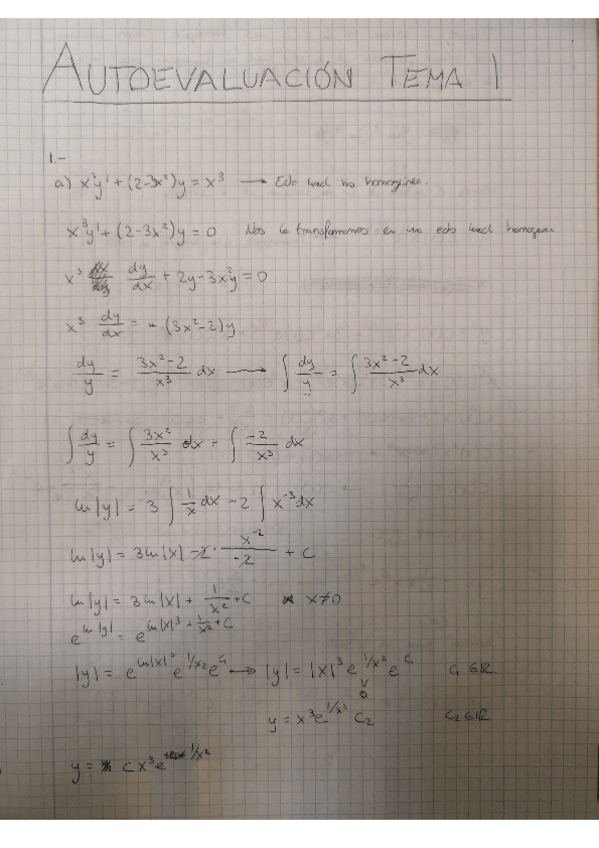 AUTOEVALUACIÓN TEMA 1
1.-
a) x³y' + (2-3x²)y = x³ → Edo lineal no homogénea.
x³y' + (2-3x²)y = 0 Nos la transformamos en una edo lineal homogénea
x³ dy/dx + 2y - 3x²y = 0
x³ dy/dx = (3x²-2)y
dy/y = 3x²-2/x³ dx → ∫ dy/y = ∫ 3x²-2/x³ dx
∫ dy/y = ∫ 3x²/x³ dx - ∫ -2/x³ dx
ln|y| = 3 ∫ 1/x dx - 2 ∫ x⁻³ dx
ln|y| = 3ln|x| - 2 · x⁻²/-2 + C
ln|y| = 3ln|x| + 1/x² + C x≠0
e^ln|y| = e^ln|x|³ + 1/x² + C
|y| = e^ln|x|³ e^1/x² e^C₁ → |y| = |x|³ e^1/x² e^C₁ C₁ ∈ IR.
v
0
y = x³ e^1/x² C₂ C₂ ∈ IR
y = C x³ e^1/x²